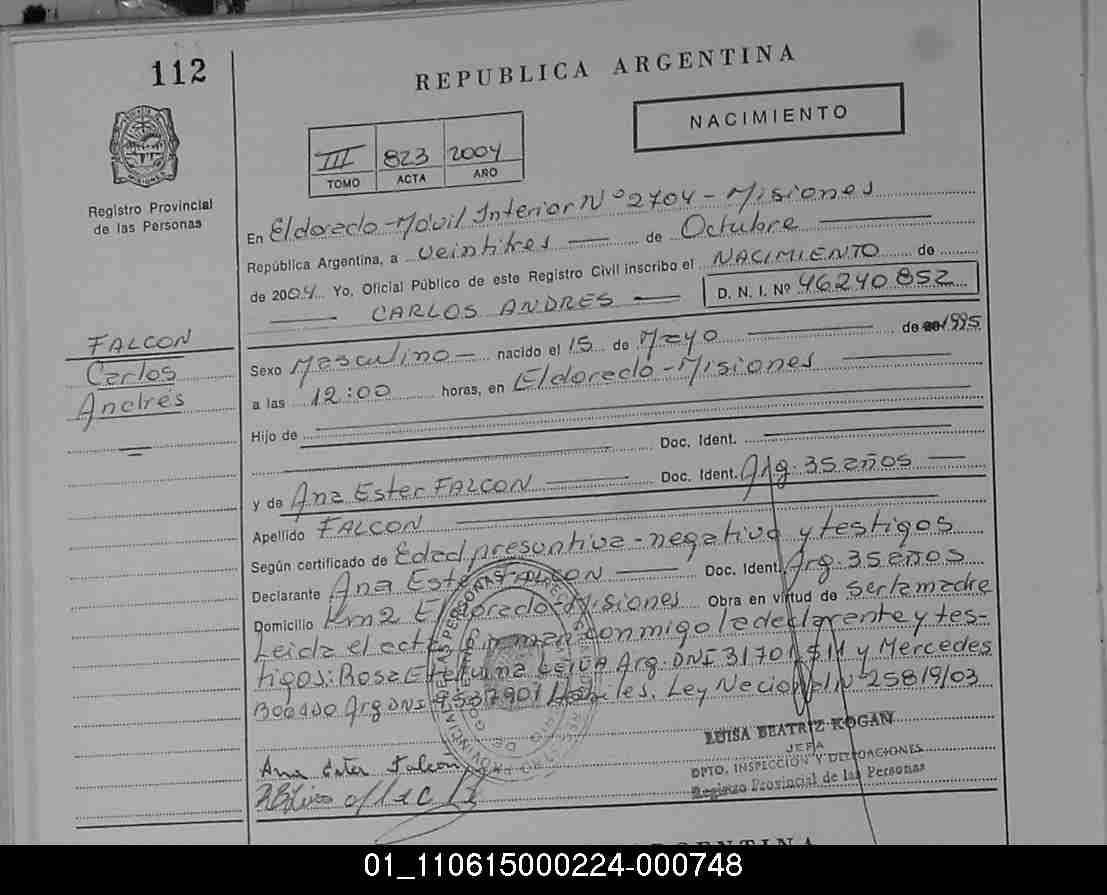 112
REPUBLICA ARGENTINA
NACIMIENTO
III 823 2004
TOMO ACTA AÑO
Registro Provincial
de las Personas
En Eldorado-Móvil Interior Nº 2704 - Misiones
República Argentina, a veintitres de Octubre
de 2004 Yo, Oficial Público de este Registro Civil inscribo el NACIMIENTO de
CARLOS ANDRES D. N. I. Nº 46240852
FALCON
Carlos
Andrés
Sexo Masculino nacido el 15 de Mayo de 1995
a las 12:00 horas, en Eldorado - Misiones
Hijo de
Doc. Ident.
y de Ana Ester FALCON Doc. Ident. Arg. 35 años
Apellido FALCON
Según certificado de Edad presuntiva - negativa y testigos
Declarante Ana Ester FALCON Doc. Ident. Arg. 35 años
Domicilio Km 2 Eldorado-Misiones Obra en virtud de ser la madre
Leida el acta firman conmigo la declarante y tes-
tigos: Rosa Arg. DNI y Mercedes
Arg DNI Ley Nacional Nº 25819/03
LUISA BEATRIZ KOGAN
JEFA
DPTO. INSPECCION Y DELEGACIONES
Registro Provincial de las Personas
Ana Ester Falcon
ARGENTINA
01_110615000224-000748